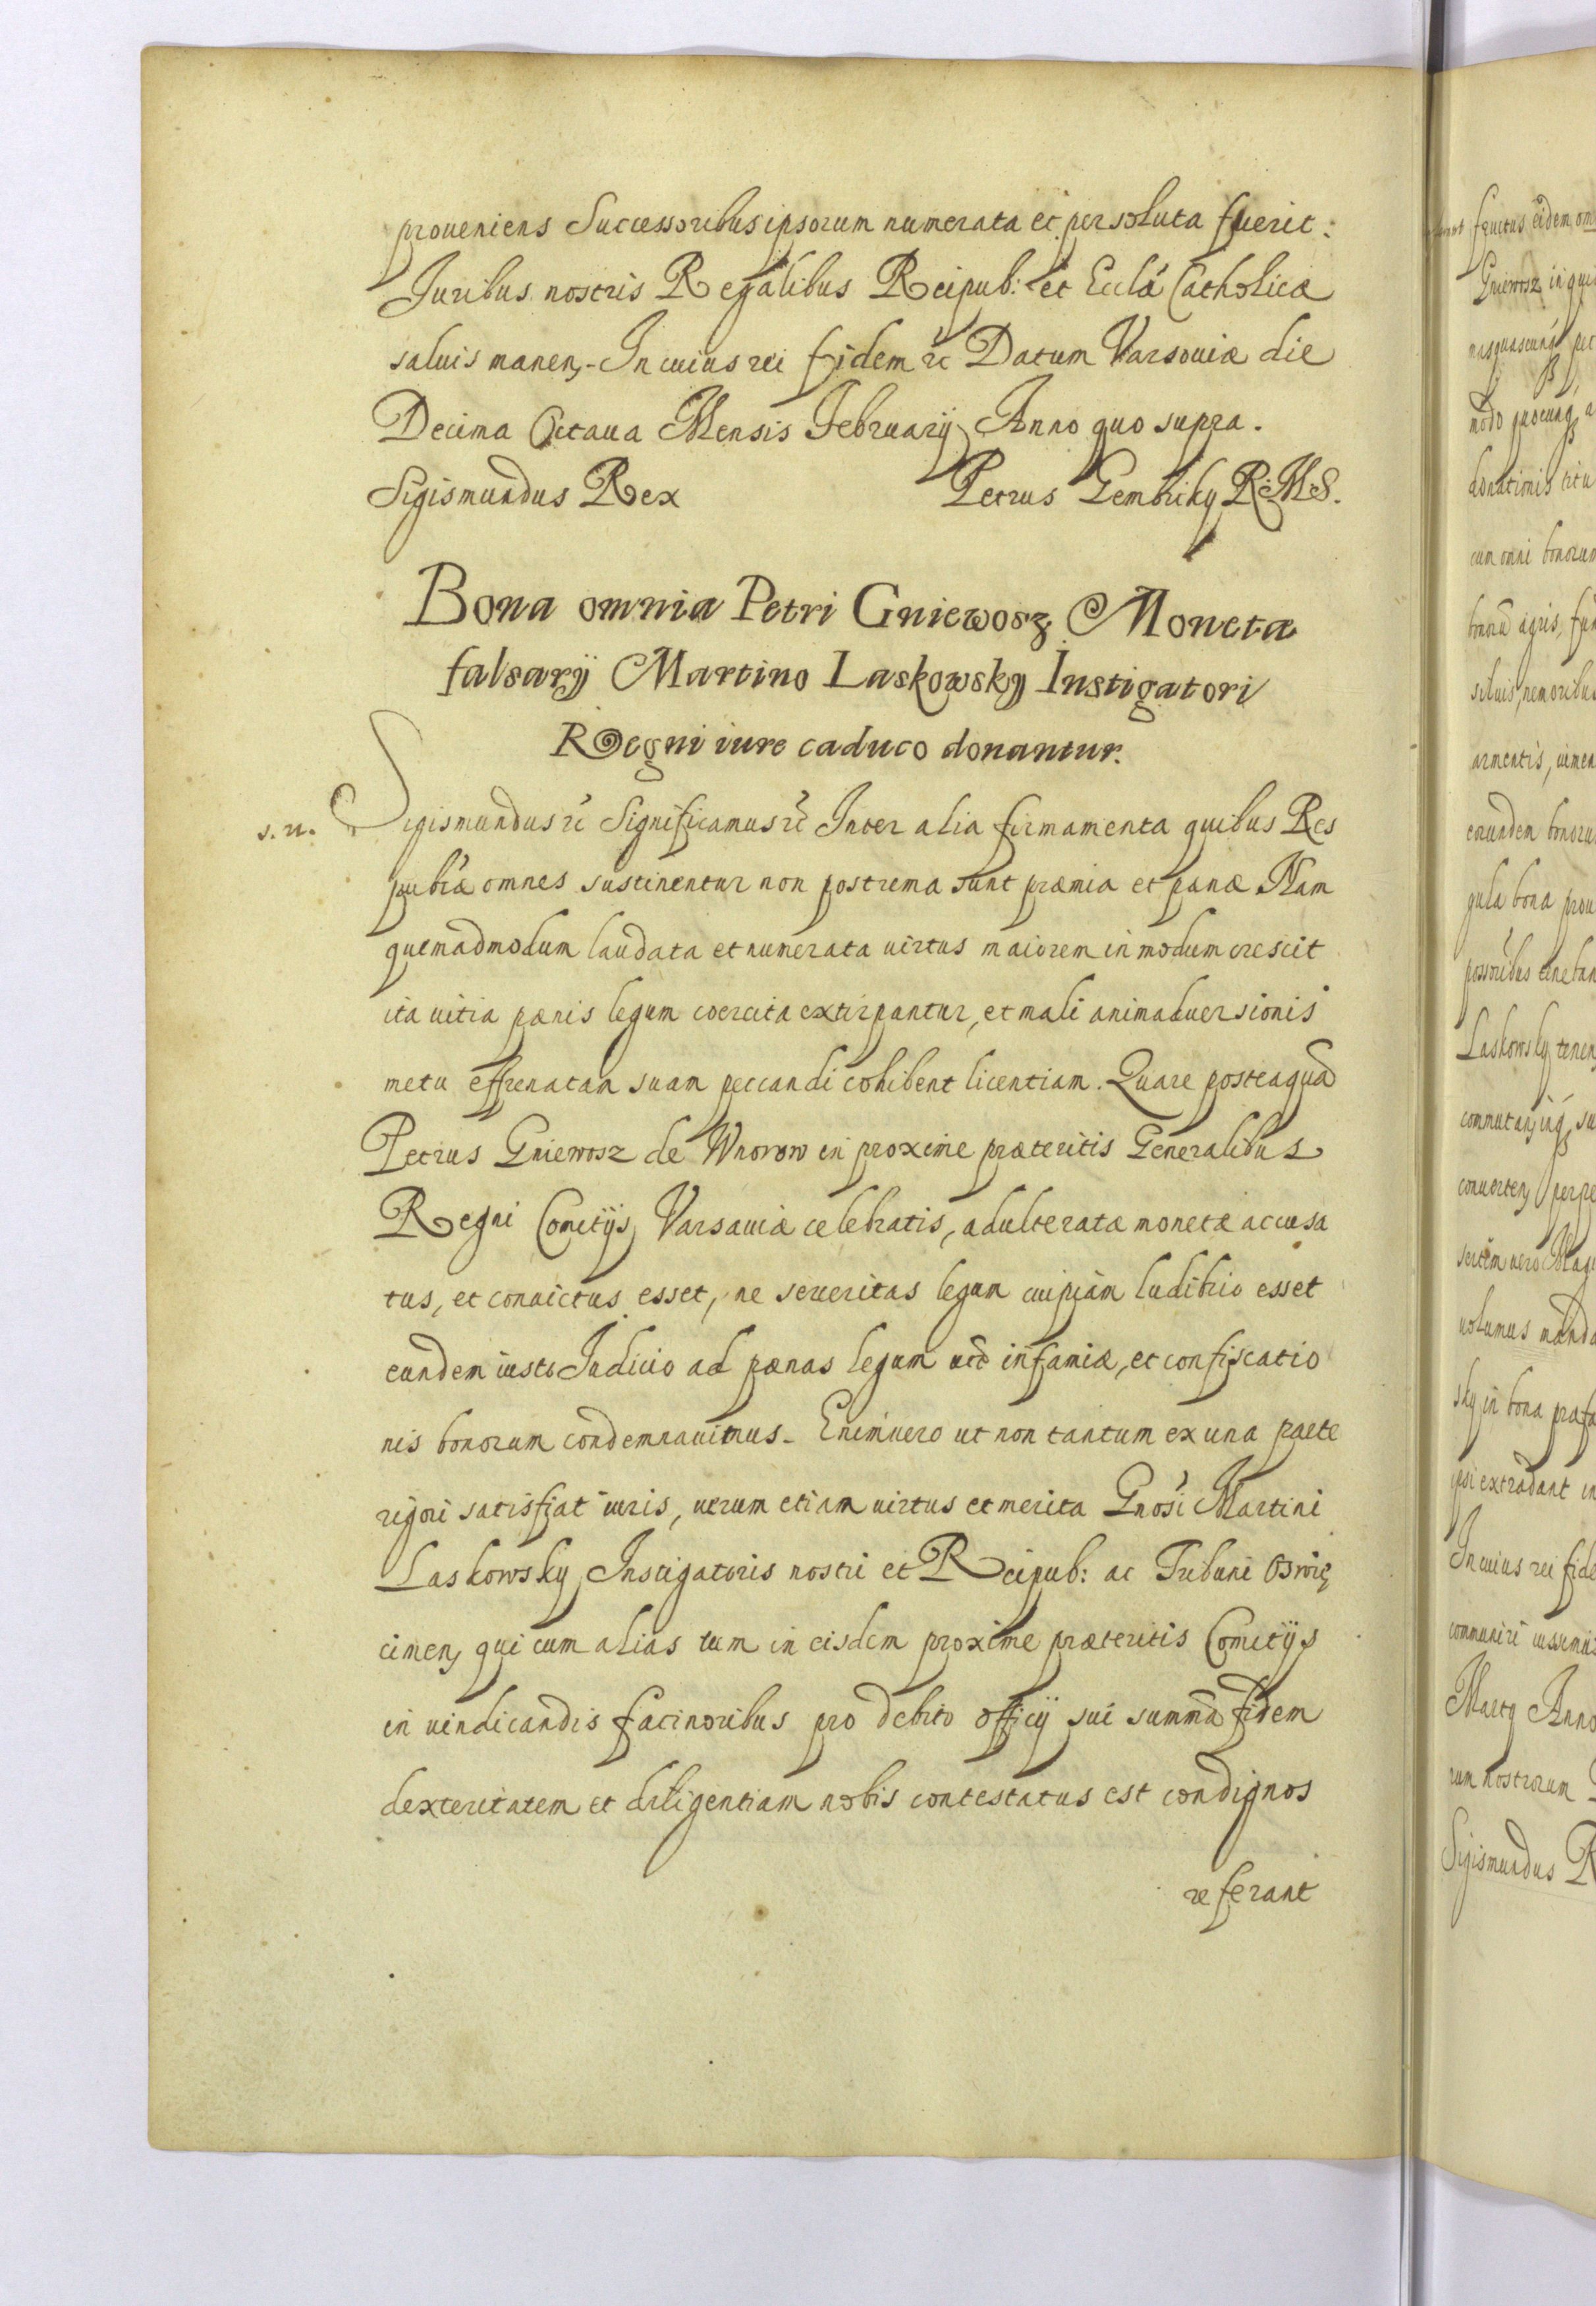 proueniens Successoribus ipsorum numerata et persoluta fuerit:
Juribus nostris Regalibus Reipub: et Eccla Catholicæ
saluis manen, - In cuius rei fidem rc Datum Varsouiæ die
Decima Octaua Mensis February Anno quo supra.
Sigismundus Rex Petrus Gembicky R:M:S.
Bona omnia Petri Gniewosz Moneta
falsarÿ Martino Laskowsky Instigatori
Regni iure caduco donantur.
s. n. Sigismundus rc Significamus rc Inter alia firmamenta quibus Res
pubcæ omnes sustinentur non postrema sunt præmia et pænæ Nam
quemadmodum laudata et numerata uirtus maiorem in modum crescit
ita uitia pænis legum coercita extirpantur, et mali animaduersionis
metu effrenatam suam peccandi cohibent licentiam. Quare posteaquã
Petrus Gniewosz de Wnorow in proxime præteritis Generalibus
Regni Comitÿs Varsauiæ celebratis, adulteratæ monetæ accusa
tus, et conuictus esset, ne seueritas legum cuipiam ludibrio esset
eundem iusto Judicio ad pænas legum infamiæ, et confiscatio
nis bonorum condemnauimus - Enimuero ut non tantum ex una parte
rigori satisfiat iuris, uerum etiam uirtus et merita Gnosi Martini
Laskowsky Instigatoris nostri et Reipub: ac Tribuni Oswię
cimen, qui cum alias tum in eisdem proxime præteritis Comitÿs
in uindicandis facinoribus pro debito officÿ sui summã fidem
dexteritatem et diligentiam nobis contestatus est condignos
referant
fructus eidem om
Gniewosz in qui
nisquascunq, per
modo quocunq, a
donationis titu
cum omni bonorum
bonorũ agris, fun
siluis, nemoribus
armentis, iumen
eorundem bonoru
gula bona prou
possoribus teneban
Laskowsky tenen,
commutan, inq, su
conuerten, perpe
sertim uero Mag
uolumus manda
sky in bona præfa
ipsi extradant in
In cuius rei fide
communiri iussimus
Marty Anno
rum nostrorum
Sigismundus R